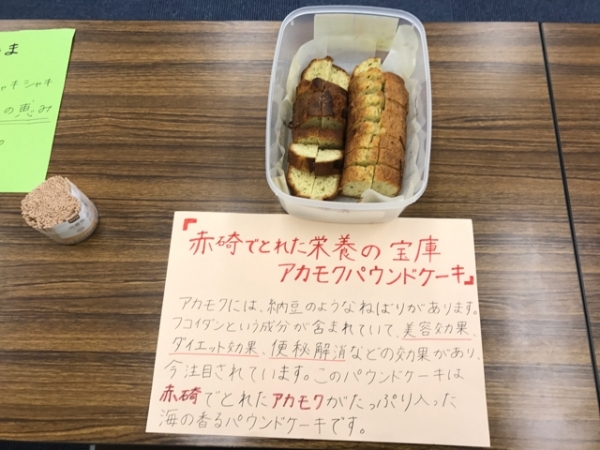 ま
シャキシャキ
の恵み
『赤碕でとれた栄養の宝庫
アカモクパウンドケーキ』
アカモクには、納豆のようなねばりがあります。
フコイダンという成分が含まれていて、美容効果、
ダイエット効果、便秘解消などの効果があり、
今注目されています。このパウンドケーキは
赤碕でとれたアカモクがたっぷり入った
海の香るパウンドケーキです。